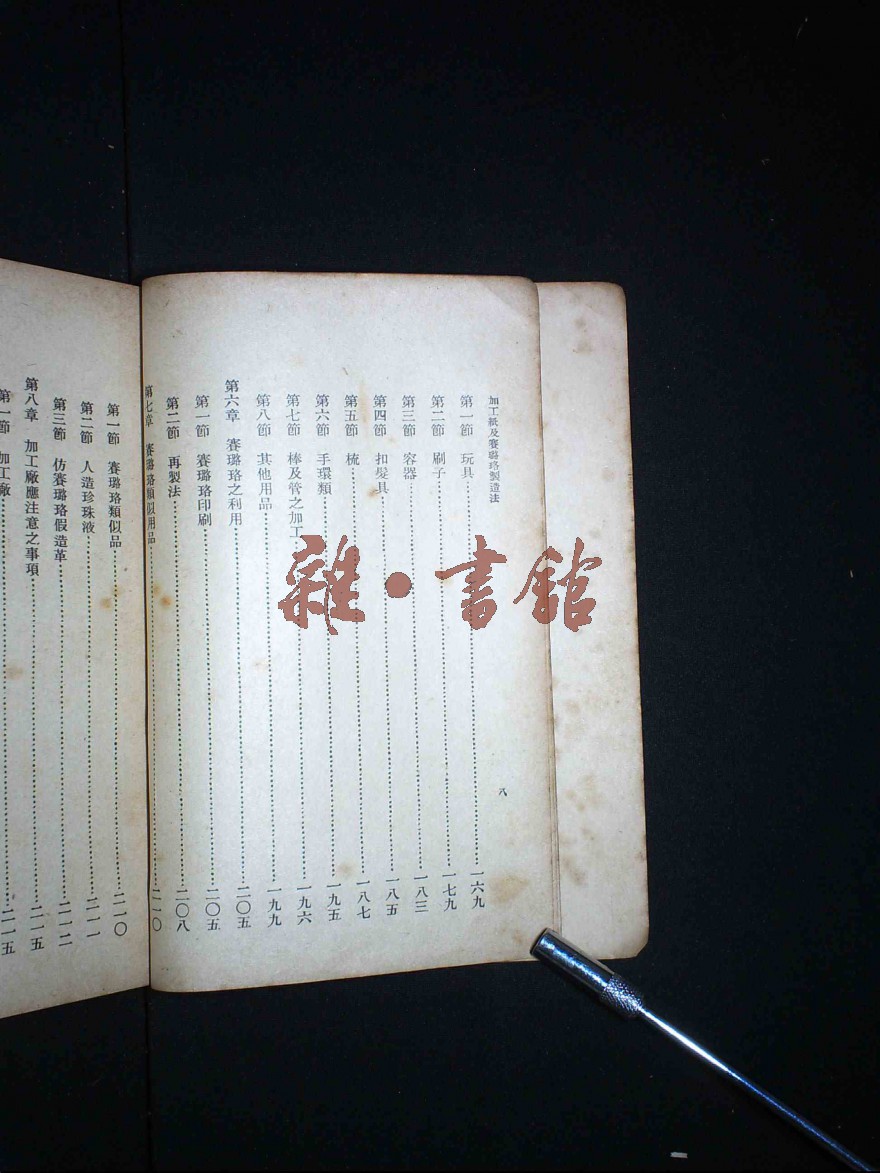 加工紙及賽璐珞製造法
八
第一節 玩具 一六九
第二節 刷子 一七九
第三節 容器 一八三
第四節 扣髮具 一八五
第五節 梳 一八七
第六節 手環類 一九五
第七節 棒及管之加工 一九六
第八節 其他用品 一九九
第六章 賽璐珞之利用 二〇五
第一節 賽璐珞印刷 二〇五
第二節 再製法 二〇八
第七章 賽璐珞類似用品 二一〇
第一節 賽璐珞類似品 二一〇
第二節 人造珍珠液 二一一
第三節 仿賽璐珞假造革 二一二
第八章 加工廠應注意之事項 二一五
第一節 加工廠 二一五
雜·書館